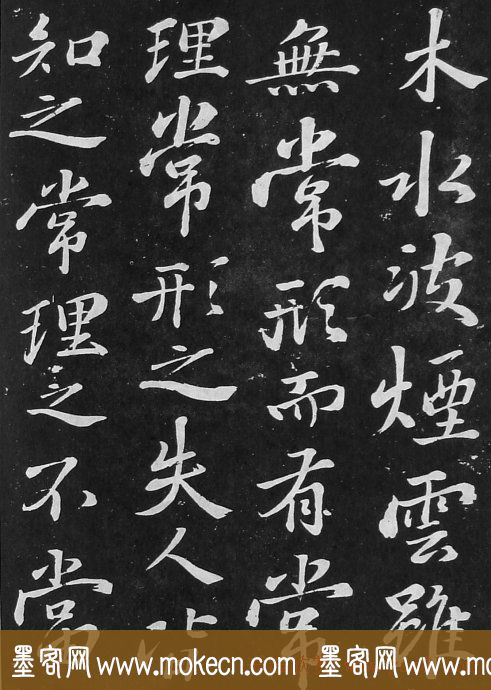 木水波煙雲雖
無常形而有常
理常形之失人皆
知之常理之不當
墨客网 www.mokecn.com 墨客网 www.mokecn.com